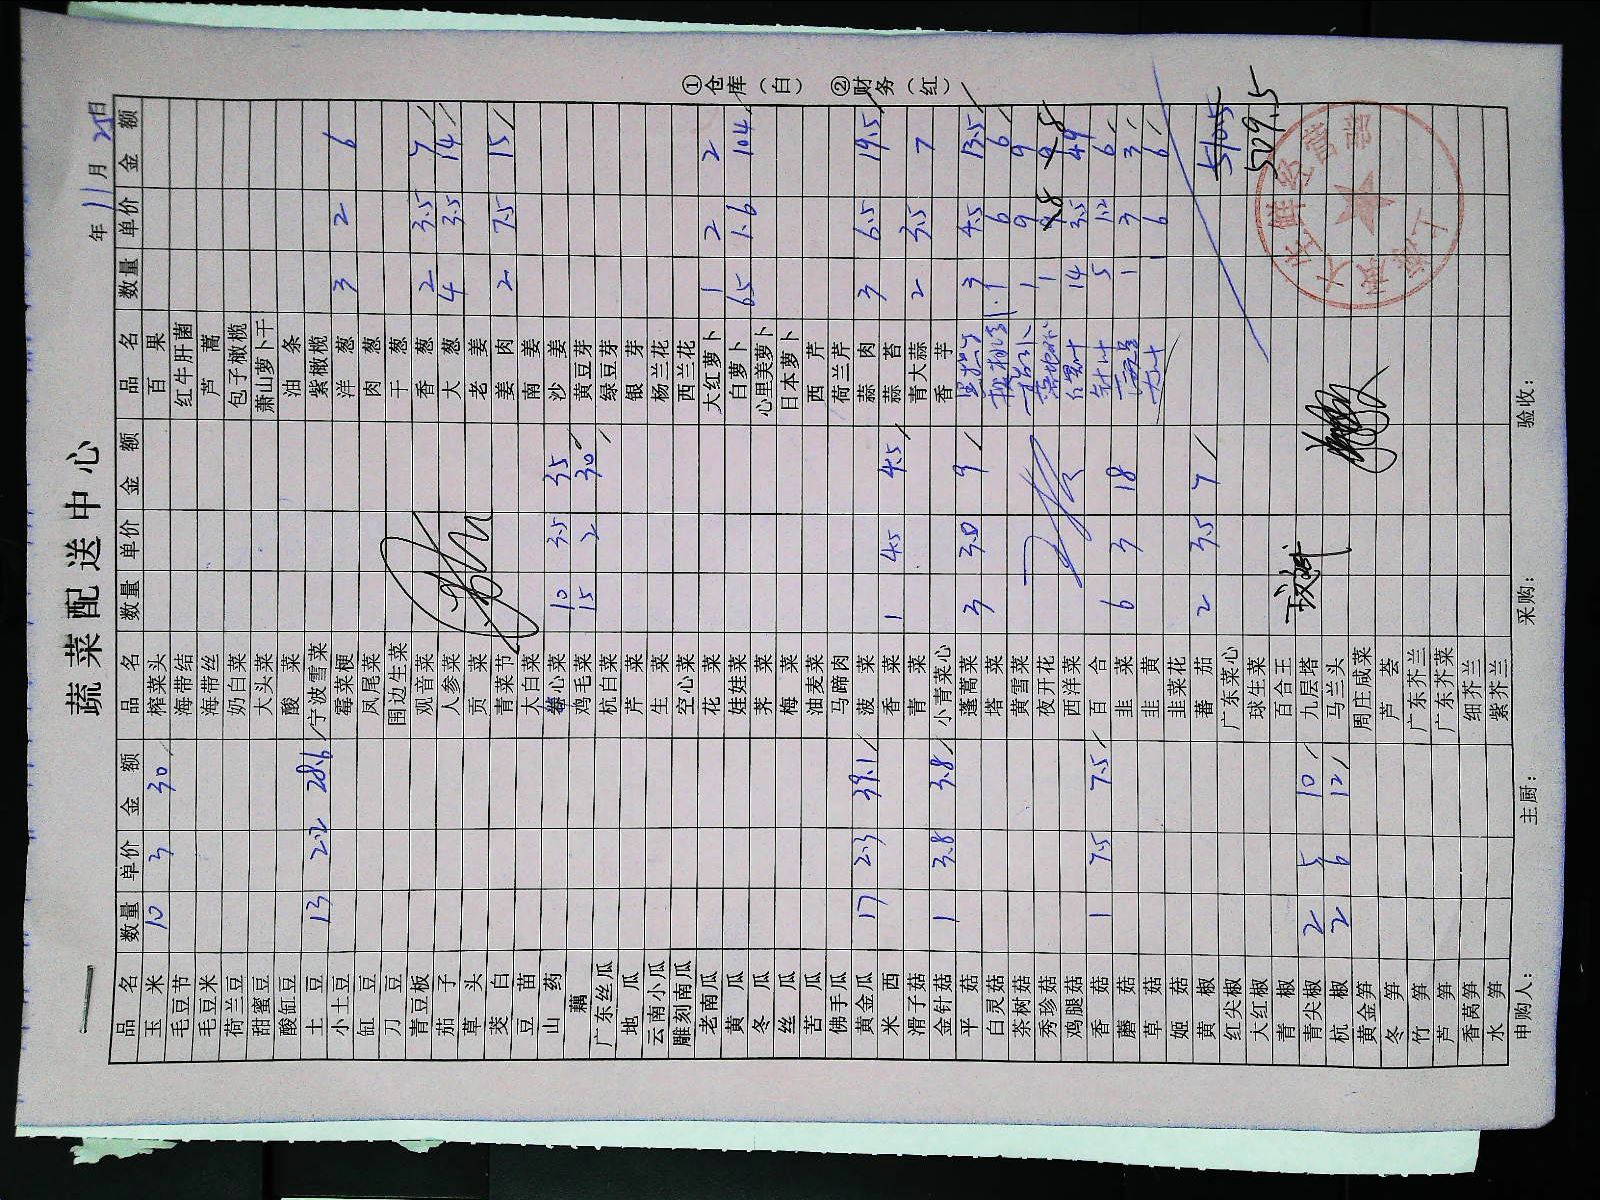 蔬菜配送中心
年 11 月 25日
品名 数量 单价 金额 品名 数量 单价 金额 品名 数量 单价 金额
玉米 10 3 30 榨菜头 百果
毛豆节 海带结 红牛肝菌
毛豆米 海带丝 芦蒿
荷兰豆 奶白菜 包子橄榄
甜蜜豆 大头菜 萧山萝卜干
酸缸豆 酸菜 油条
土豆 13 2.2 28.6 宁波雪菜 紫橄榄
小土豆 霉菜梗 洋葱 3 2 6
缸豆 凤尾菜 肉葱
刀豆 围边生菜 干葱
青豆板 观音菜 香葱 2 3.5 7
茄子 人参菜 大葱 4 3.5 14
草头 贡菜 老姜
茭白 青菜节 姜肉 2 7.5 15
豆苗 大白菜 南姜
山药 心菜 10 3.5 35 沙姜
藕 鸡毛菜 15 2 30 黄豆芽
广东丝瓜 杭白菜 绿豆芽
地瓜 芹菜 银芽
云南小瓜 生菜 杨兰花
雕刻南瓜 空心菜 西兰花
老南瓜 花菜 大红萝卜 1 2 2
黄瓜 娃娃菜 白萝卜 65 1.6 104
冬瓜 荠菜 心里美萝卜
丝瓜 梅菜 日本萝卜
苦瓜 油麦菜 西芹
佛手瓜 马蹄肉 荷兰芹
黄金瓜 17 2.3 39.1 菠菜 蒜肉 3 6.5 19.5
米西 香菜 1 4.5 4.5 蒜苔
滑子菇 青菜 青大蒜 2 3.5 7
金针菇 1 3.8 3.8 小青菜心 香芋
平菇 蓬蒿菜 3 3.0 9 3 4.5 13.5
白灵菇 塔菜 1 6 6
茶树菇 黄雪菜 1 9 9
秀珍菇 夜开花 1 8 8
鸡腿菇 西洋菜 14 3.5 49
香菇 1 7.5 7.5 百合 5 1.2 6
蘑菇 韭菜 6 3 18 1 3 3
草菇 韭黄 1 6 6
姬菇 韭菜花
黄椒 蕃茄 2 3.5 7
红尖椒 广东菜心 510.5
大红椒 球生菜 509.5
青椒 百合王
青尖椒 2 5 10 九层塔
杭椒 2 6 12 马兰头
黄金笋 周庄咸菜
冬笋 芦荟
竹笋 广东芥兰
芦笋 广东芥菜
香莴笋 细芥兰
水笋 紫芥兰
申购人： 主厨： 采购： 验收：
①仓库（白） ②财务（红）